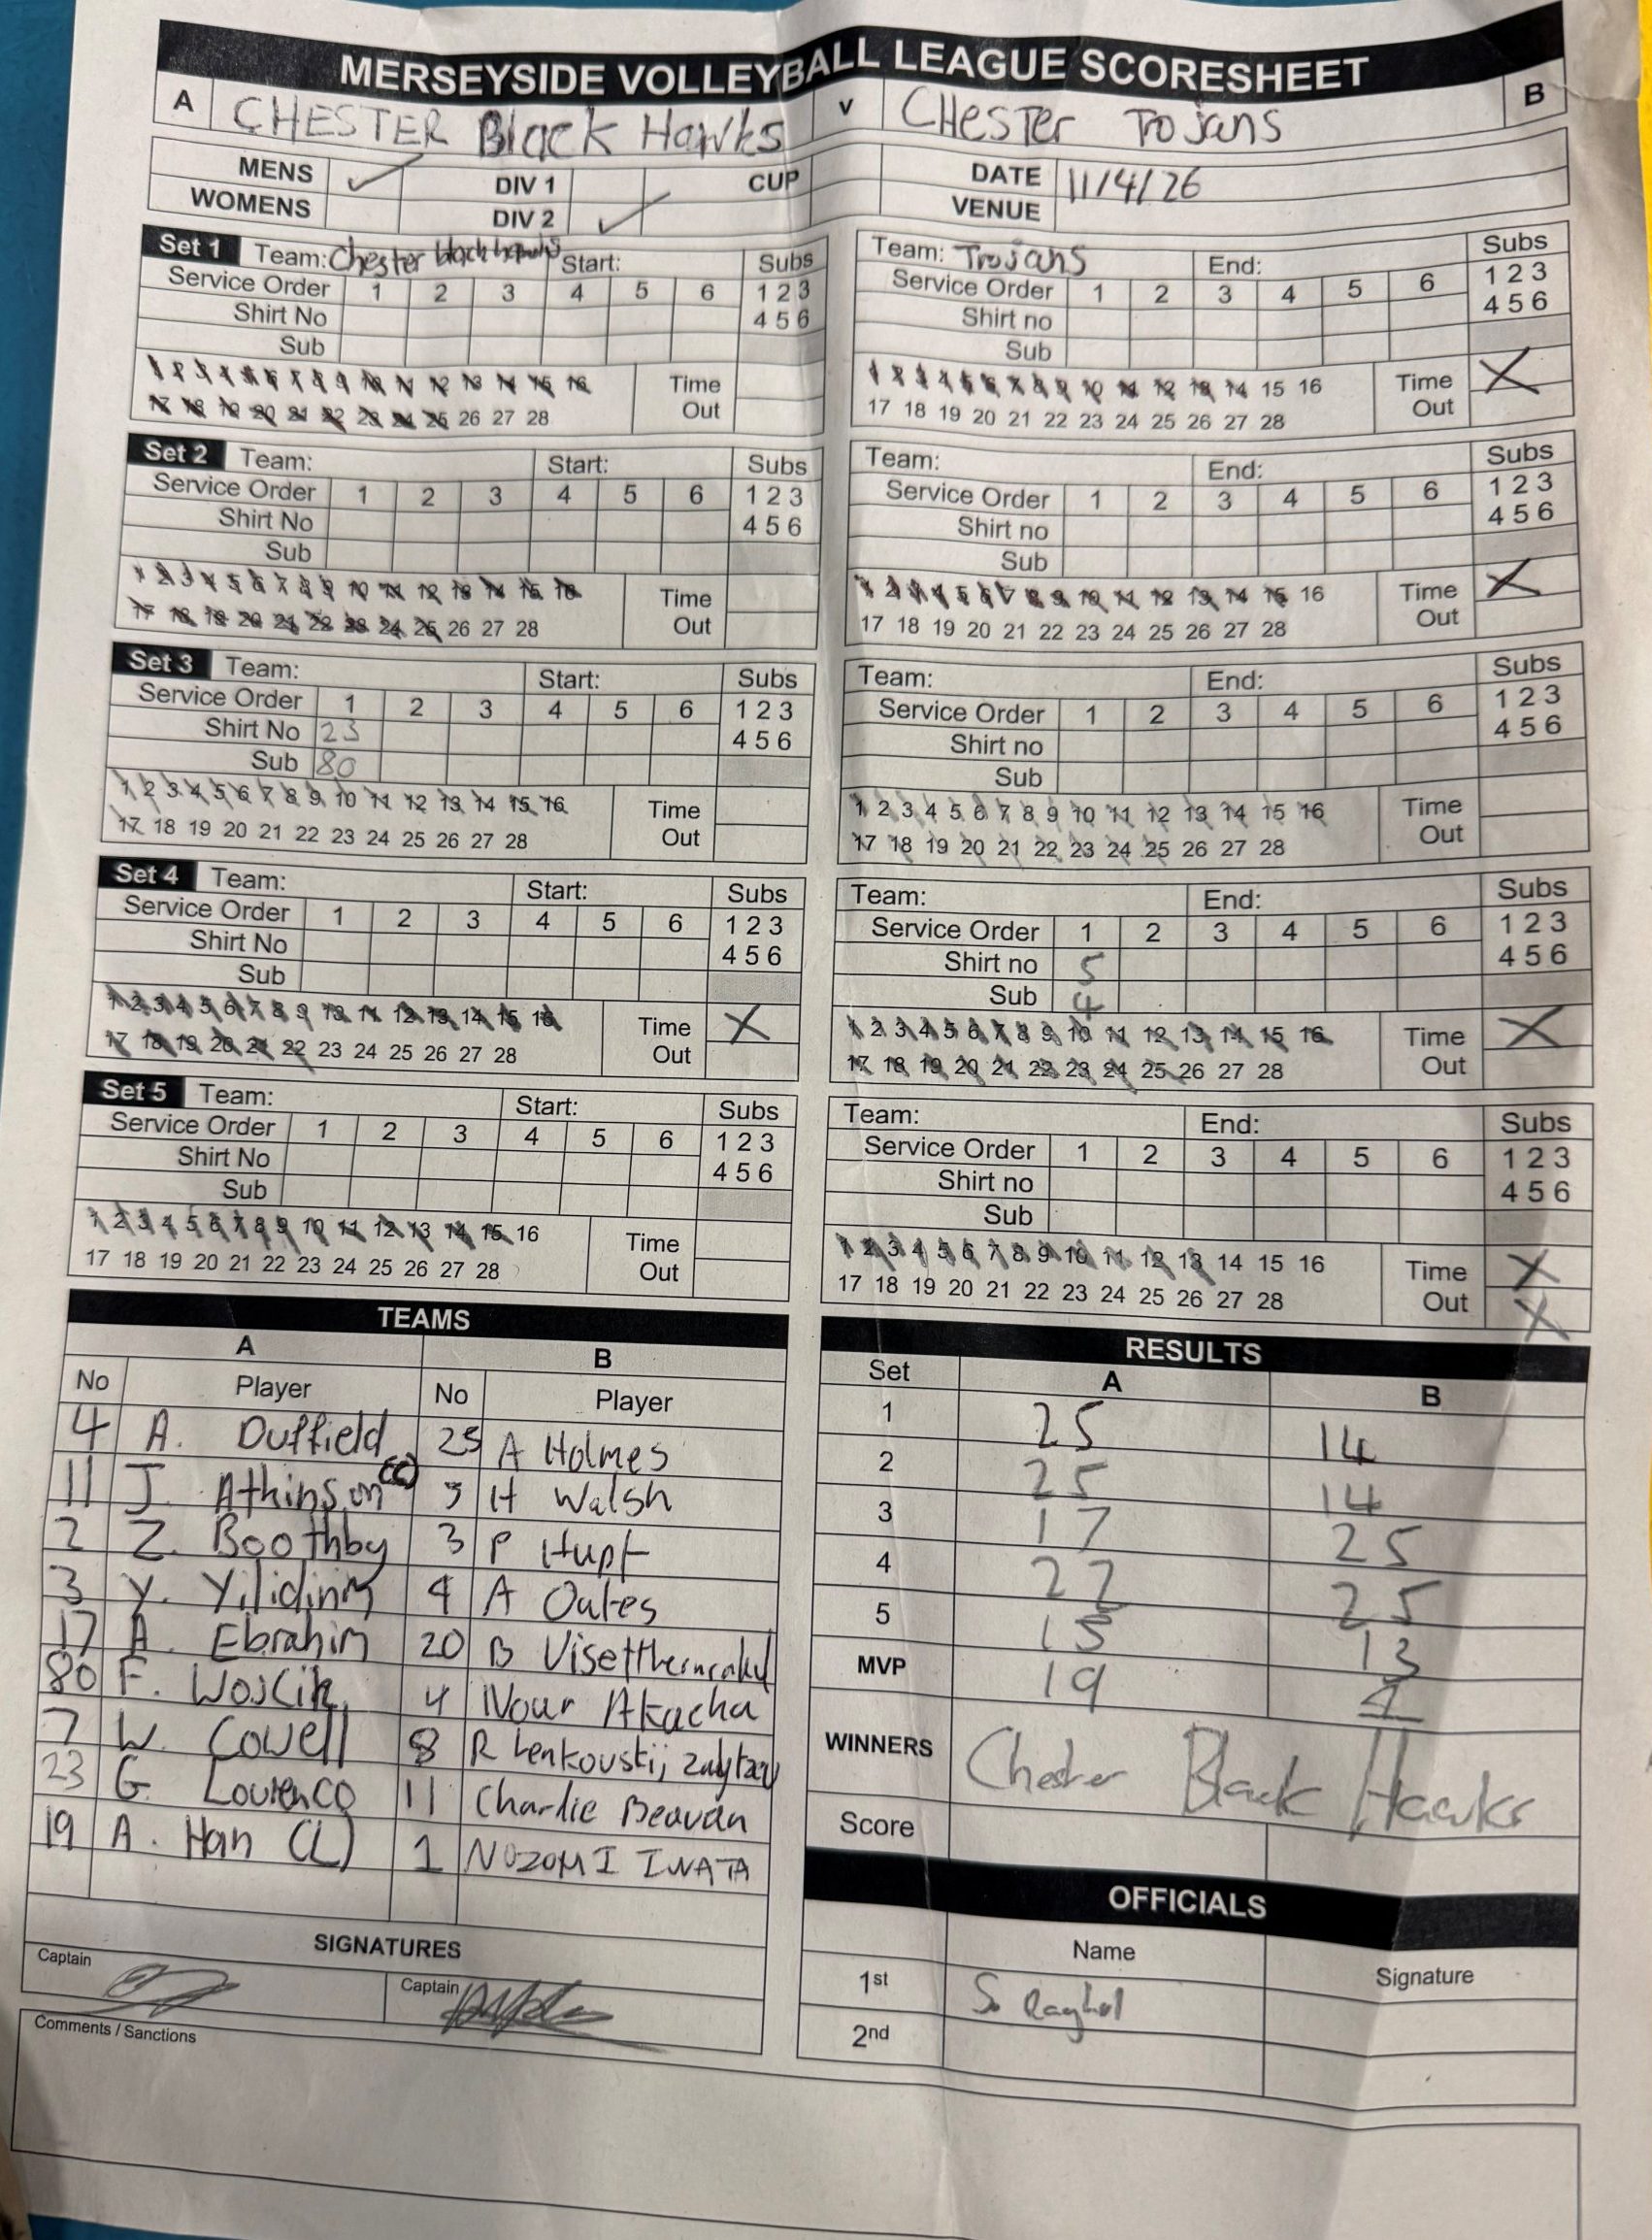 MERSEYSIDE VOLLEYBALL LEAGUE SCORESHEET
A CHESTER Black Hawks v CHesTer Trojans B
MENS ✓ DIV 1 CUP DATE 11/4/26
WOMENS DIV 2 ✓ VENUE
Set 1 Team: Chester black hawks Start: Subs
Service Order 1 2 3 4 5 6 1 2 3
Shirt No 4 5 6
Sub
1 2 3 4 5 6 7 8 9 10 11 12 13 14 15 16 Time
17 18 19 20 21 22 23 24 25 26 27 28 Out
Team: Trojans End: Subs
Service Order 1 2 3 4 5 6 1 2 3
Shirt no 4 5 6
Sub
1 2 3 4 5 6 7 8 9 10 11 12 13 14 15 16 Time X
17 18 19 20 21 22 23 24 25 26 27 28 Out
Set 2 Team: Start: Subs
Service Order 1 2 3 4 5 6 1 2 3
Shirt No 4 5 6
Sub
1 2 3 4 5 6 7 8 9 10 11 12 13 14 15 16 Time
17 18 19 20 21 22 23 24 25 26 27 28 Out
Team: End: Subs
Service Order 1 2 3 4 5 6 1 2 3
Shirt no 4 5 6
Sub
1 2 3 4 5 6 7 8 9 10 11 12 13 14 15 16 Time X
17 18 19 20 21 22 23 24 25 26 27 28 Out
Set 3 Team: Start: Subs
Service Order 1 2 3 4 5 6 1 2 3
Shirt No 23 4 5 6
Sub 80
1 2 3 4 5 6 7 8 9 10 11 12 13 14 15 16 Time
17 18 19 20 21 22 23 24 25 26 27 28 Out
Team: End: Subs
Service Order 1 2 3 4 5 6 1 2 3
Shirt no 4 5 6
Sub
1 2 3 4 5 6 7 8 9 10 11 12 13 14 15 16 Time
17 18 19 20 21 22 23 24 25 26 27 28 Out
Set 4 Team: Start: Subs
Service Order 1 2 3 4 5 6 1 2 3
Shirt No 4 5 6
Sub
1 2 3 4 5 6 7 8 9 10 11 12 13 14 15 16 Time X
17 18 19 20 21 22 23 24 25 26 27 28 Out
Team: End: Subs
Service Order 1 2 3 4 5 6 1 2 3
Shirt no 5 4 5 6
Sub 4
1 2 3 4 5 6 7 8 9 10 11 12 13 14 15 16 Time X
17 18 19 20 21 22 23 24 25 26 27 28 Out
Set 5 Team: Start: Subs
Service Order 1 2 3 4 5 6 1 2 3
Shirt No 4 5 6
Sub
1 2 3 4 5 6 7 8 9 10 11 12 13 14 15 16 Time
17 18 19 20 21 22 23 24 25 26 27 28 Out
Team: End: Subs
Service Order 1 2 3 4 5 6 1 2 3
Shirt no 4 5 6
Sub
1 2 3 4 5 6 7 8 9 10 11 12 13 14 15 16 Time X
17 18 19 20 21 22 23 24 25 26 27 28 Out X
TEAMS
A B
No Player No Player
4 A. Duffield 25 A Holmes
11 J. Athinson (C) 5 H Walsh
2 Z. Boothby 3 P Hupf
3 Y. Yilidinm 9 A Oates
17 A. Ebrahim 20 B
80 F. Wojcik 4 Nour Akacha
7 W. Cowell 8 R Lenkovskij
23 G. Lourenco 11 Charlie Beavan
19 A. Han (L) 1 NOZOMI IWATA
SIGNATURES
Captain Captain
Comments / Sanctions
RESULTS
Set A B
1 25 14
2 25 14
3 17 25
4 22 25
5 15 13
MVP 19 1
WINNERS Chester Black Hawks
Score
OFFICIALS
Name Signature
1st S.
2nd